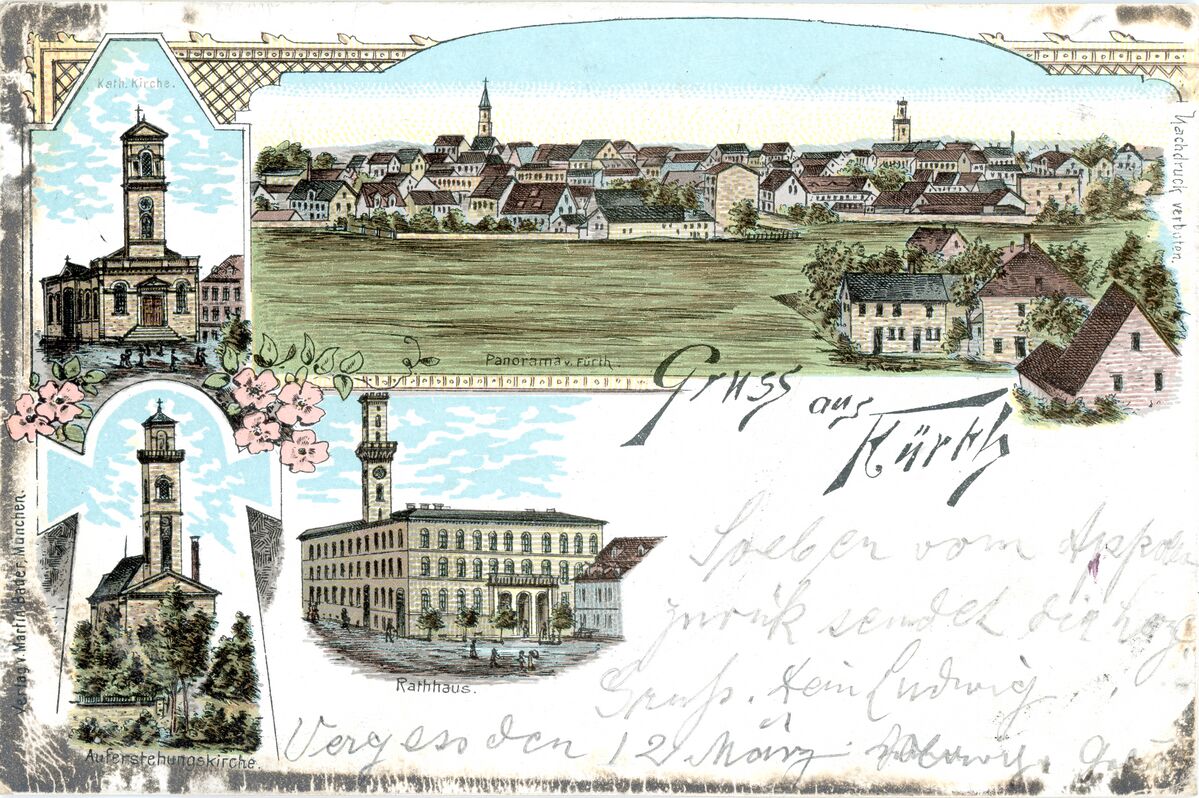 Kath. Kirche.
Panorama v. Fürth
Nachdruck verboten.
Gruss aus
Fürth
Verlag v. Martin Bauer, München.
Rathhaus.
Auferstehungskirche.
Soeben vom
zurük sendet dir
Gruß. Dein Ludwig
Vergess den 12 März